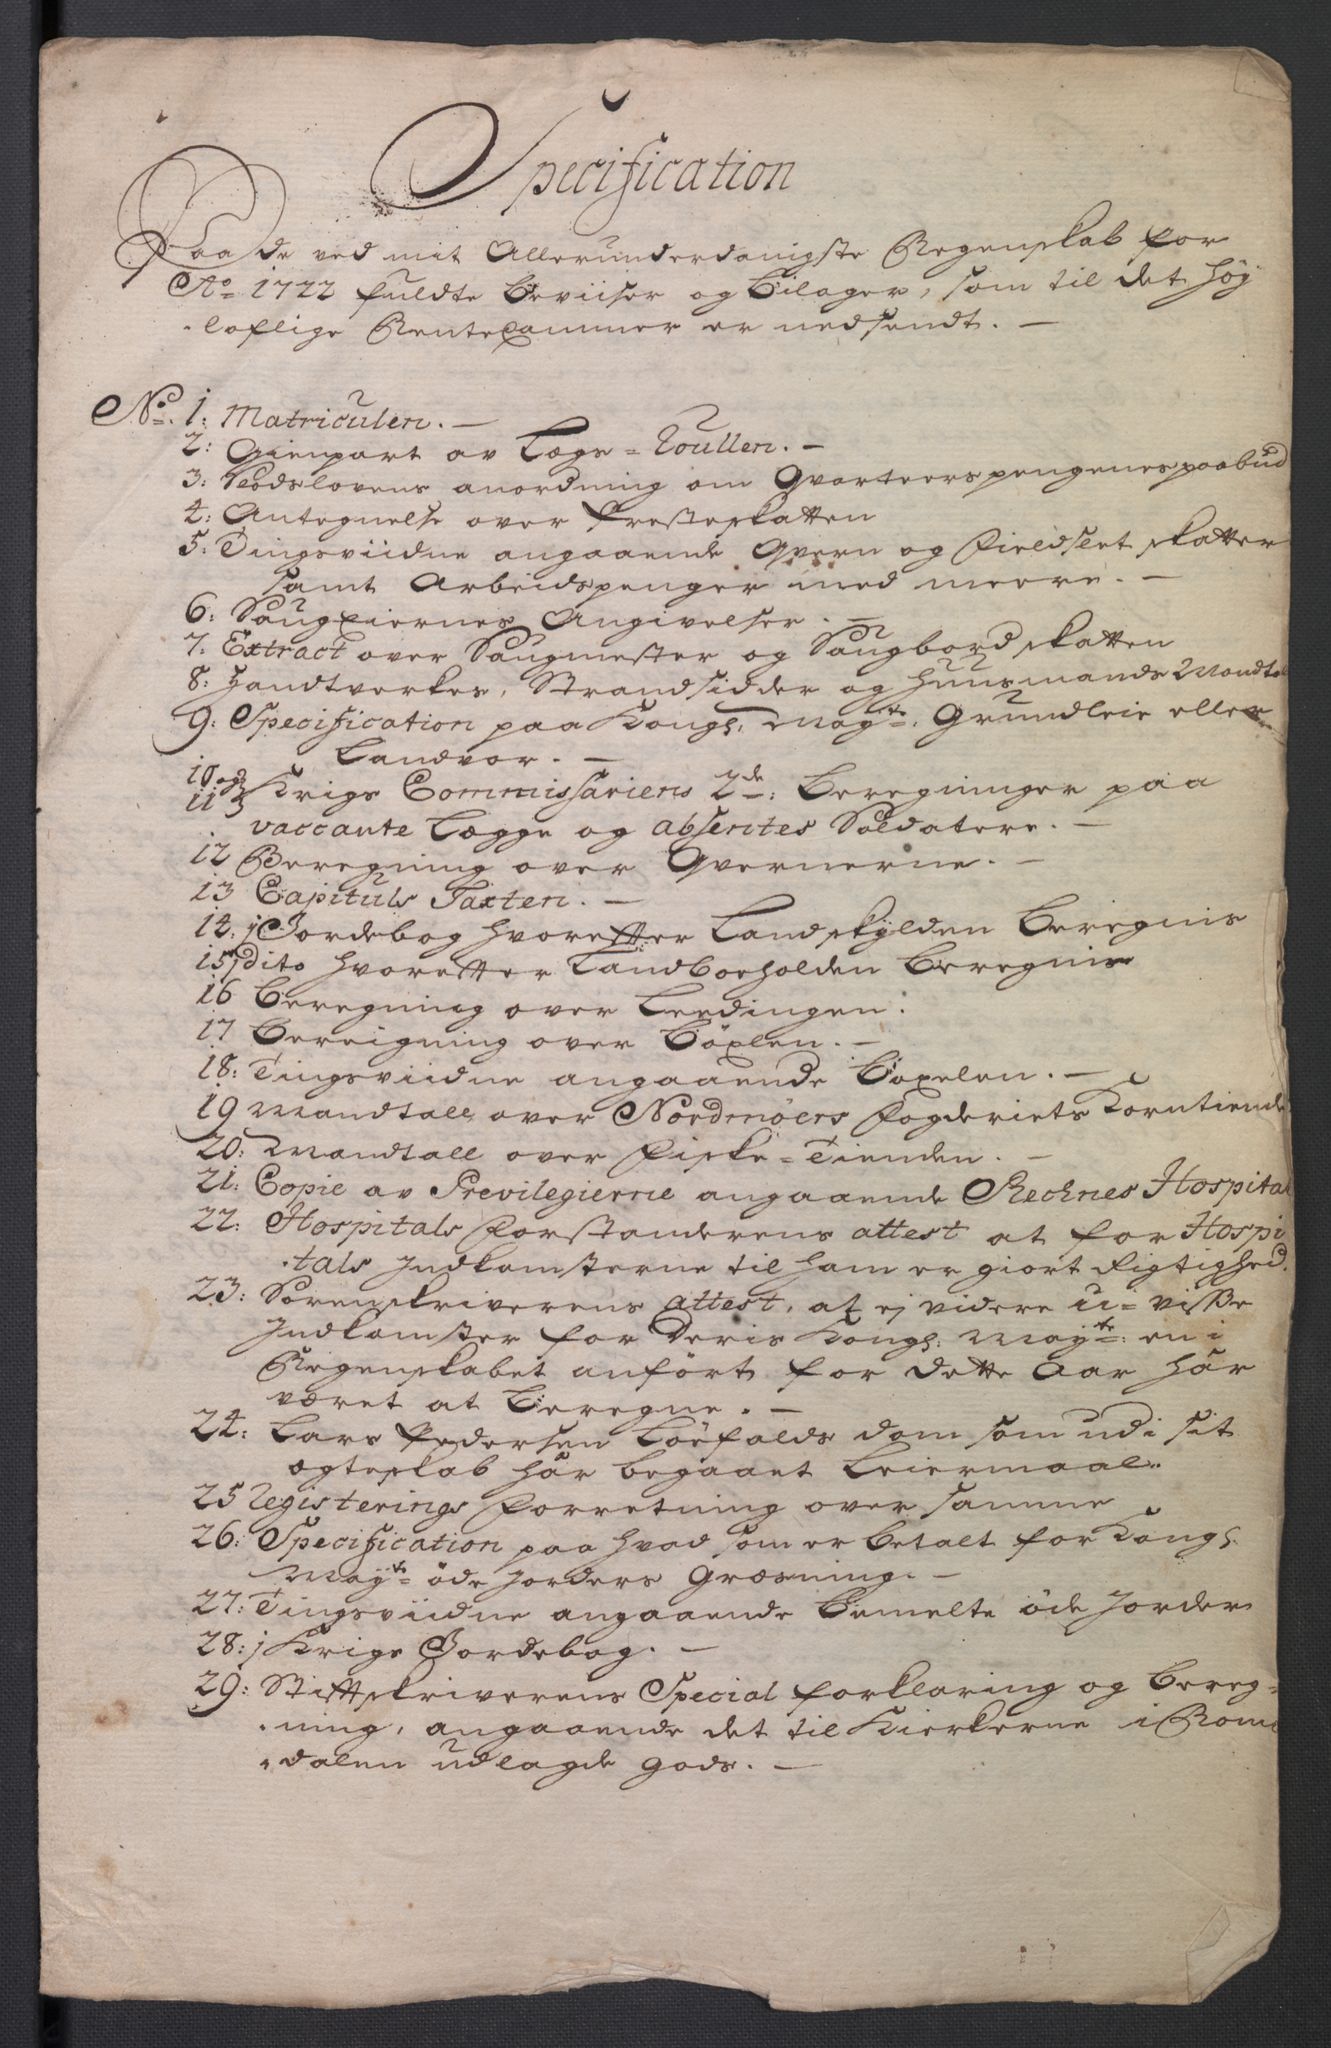 Specification
Paa de ved mit Allerunderdanigste Regenskab for
Ao 1722 fuldte Beviiser og Bilager, som til det Höy
loflige Rente Cammer er nedsendt. —
No. 1: Matriculen. —
2: Gienpart av Lægs-Roullen. —
3: anordning om Qvarteers pengenes paabud
4: Antegnelse over Presteskatten
5: Tingsviidne angaaende Qvern og Fieldslet skatter
samt Arbeidspenger med meere. —
6: Saugeiernes Angivelser. —
7. Extract over Saugmester og Saugbord skatten
8: Handtverkes, Strandsidder og Huusmands Mandtal
9: Specification paa Kongl. Mayts. Grundleie eller
Landvor. —
10 og
11 Krigs Commissariens 2de: Beregninger paa
vaccante Lægge og absentes Soldatere. —
12 Beregning over Qvernerne. —
13 Capituls Taxten. —
14: j Jordebog hvorefter Landskylden Beregnis
15 j dito hvorefter Landboeholden Beregnis
16 Beregning over Leedingen.
17 Bereigning over Böxlen. —
18: Tingsviidne angaaende Böxelen. —
19 Mandtall over Nordmöers Fogderiets Korntiende
20: Mandtall over Fiske-Tienden. —
21: Copie av Previlegierne angaaende Reknes Hospital
22: Hospitals Forstanderens attest at for Hospi
tals Indkomsterne til ham er giort Rigtighed.
23: Sorenskriverens attest, at ej videre u-visse
Indkomster for Deris Kongl: Mayts: en i
Regenskabet anfört for dette Aar har
været at Beregne. —
24: Lars Pedersen Löefalds dom som udi sit
ægteskab har begaaet Leiermaal.
25 Registerings Forretning over samme
26: Specification paa hvad som er betalt for Kongl.
Mayts öde Jorders Græsning. —
27: Tingsviidne angaaende Bemelte öde Jorder
28: j Krigs Jordebog. —
29: Stiftskriverens Special forklaring og Bereg-
ning, angaaende det til Kierkerne i Roms
dalen udlagde gods. —